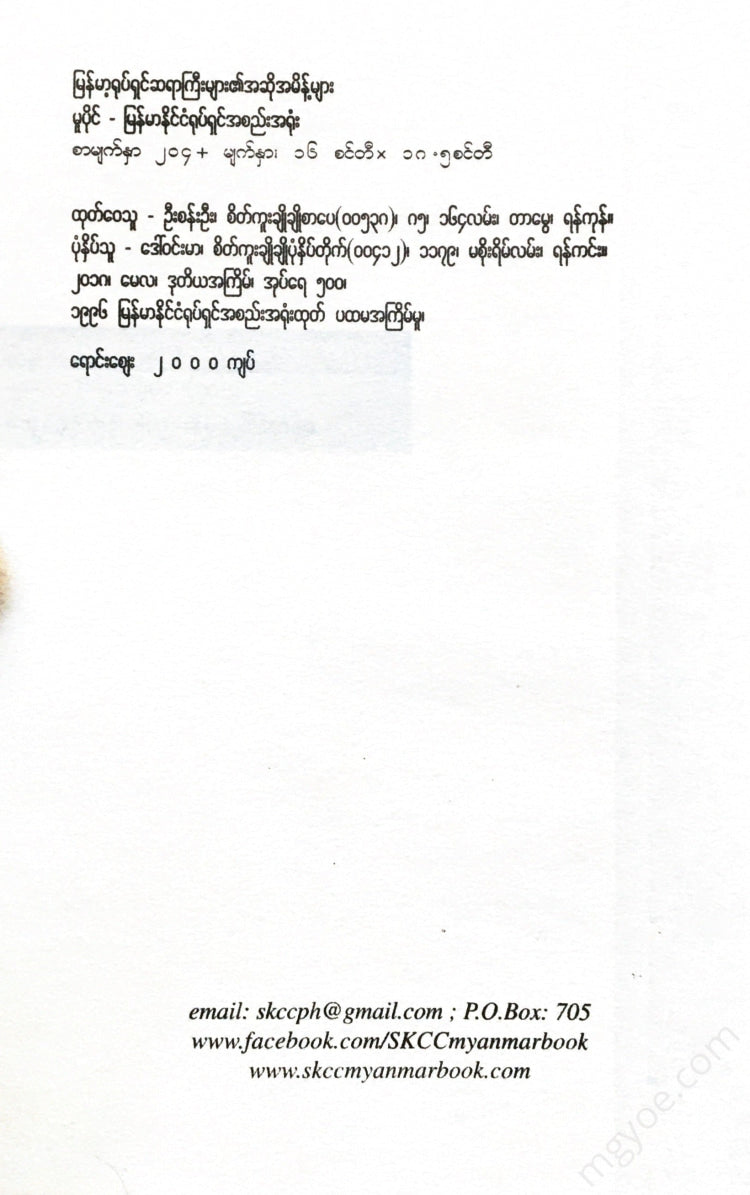 မြန်မာ့ရုပ်ရှင်ဆရာကြီးများ၏အဆိုအမိန့်များ
မူပိုင် - မြန်မာနိုင်ငံရုပ်ရှင်အစည်းအရုံး
စာမျက်နှာ ၂၀၄+ မျက်နှာ၊ ၁၆ စင်တီ× ၁၈.၅စင်တီ
ထုတ်ဝေသူ - ဦးစန်းဦး၊ စိတ်ကူးချိုချိုစာပေ(၀၀၅၃၈)၊ ၈၅၊ ၁၆၄လမ်း၊ တာမွေ၊ ရန်ကုန်။
ပုံနှိပ်သူ - ဒေါ်ဝင်းမာ၊ စိတ်ကူးချိုချိုပုံနှိပ်တိုက်(၀၀၄၁၂)၊ ၁၁၇၉၊ မစိုးရိမ်လမ်း၊ ရန်ကင်း။
၂၀၁၈၊ မေလ၊ ဒုတိယအကြိမ်၊ အုပ်ရေ ၅၀၀၊
၁၉၉၆ မြန်မာနိုင်ငံရုပ်ရှင်အစည်းအရုံးထုတ် ပထမအကြိမ်မူ၊
ရောင်းဈေး ၂ ၀ ၀ ၀ ကျပ်
email: skccph@gmail.com ; P.O.Box: 705
www.facebook.com/SKCCmyanmarbook
www.skccmyanmarbook.com
mgyoe.com